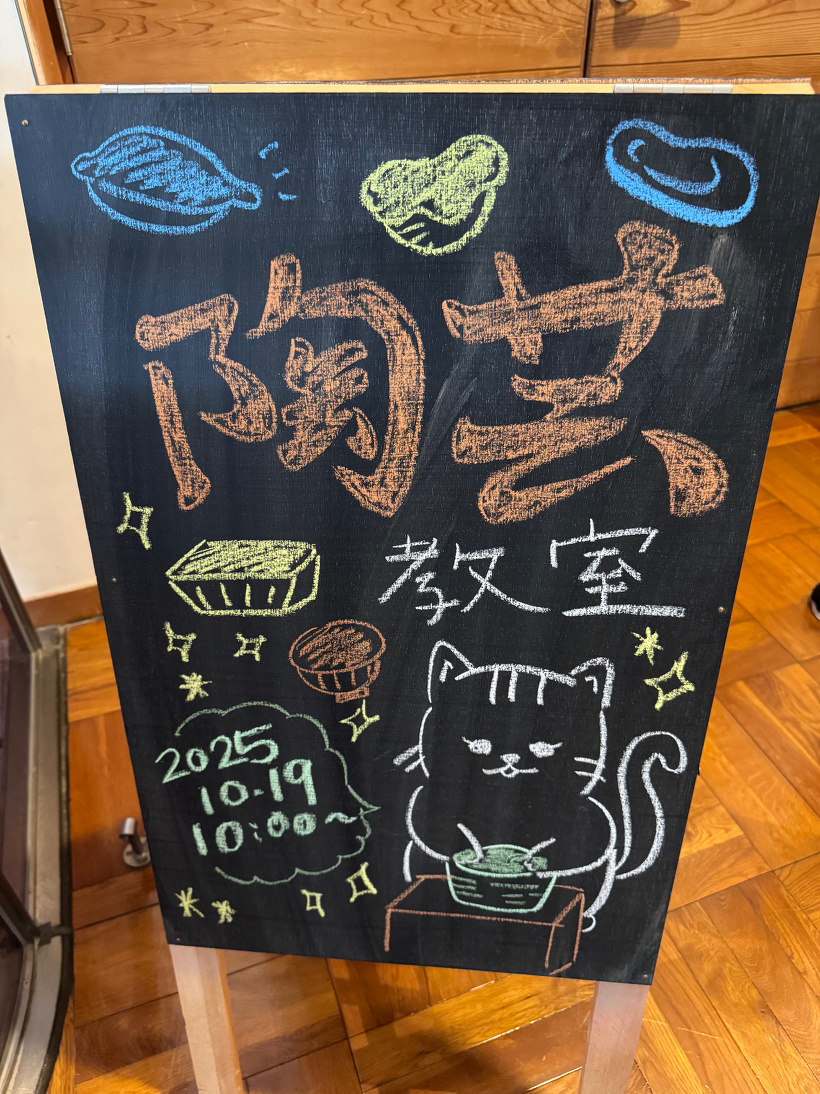 陶芸
教室
2025
10.19
10:00～